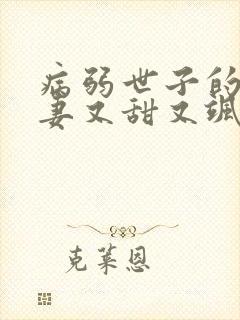 病弱世子的
妻又甜又飒
克莱恩